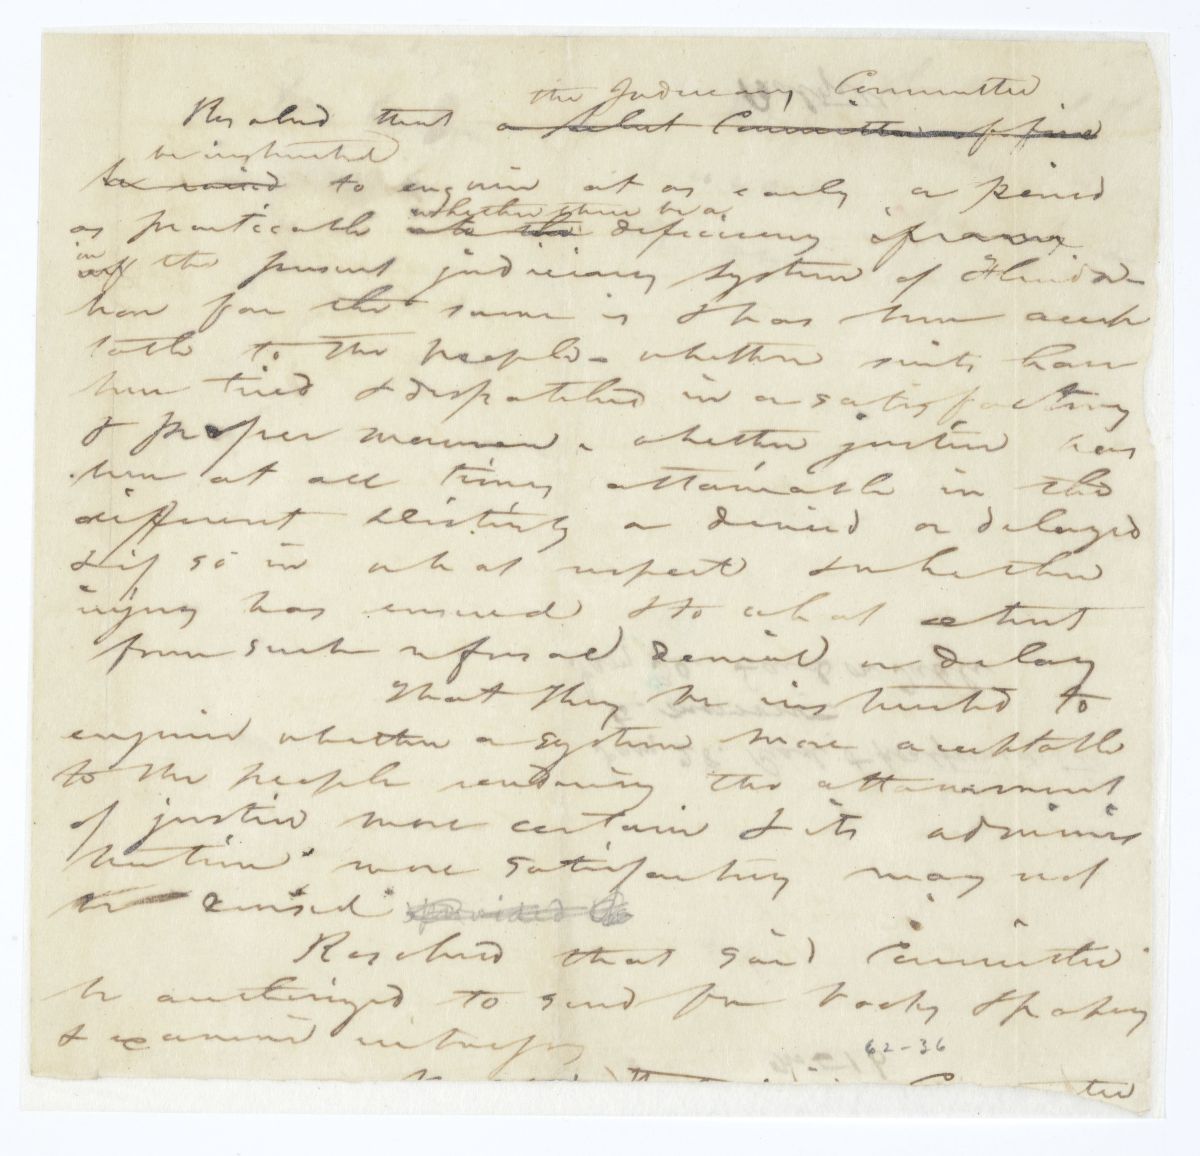 the Judiciary Committee
Resolved that a select Committee of five
be instructed
be raised to enquire at as early a period
whether there be a
as practicable as to the deficiency if any
in
of the present judiciary system of Florida
how far the same is & has been accep
table to the people - whether suits have
been tried & dispatched in a satisfactory
& proper manner - whether justice has
been at all times attainable in the
different Districts or denied or delayed
& if so in what respect & whether
injury has ensued & to what extent
from such refusal denial or delay
That they be instructed to
enquire whether a system more acceptable
to the people rendering the attainment
of justice more certain & its adminis
tration more satisfactory may not
be devised provided
Resolved that said Committee
be authorized to send for books & papers
& examine witnesses
62-36
Committee